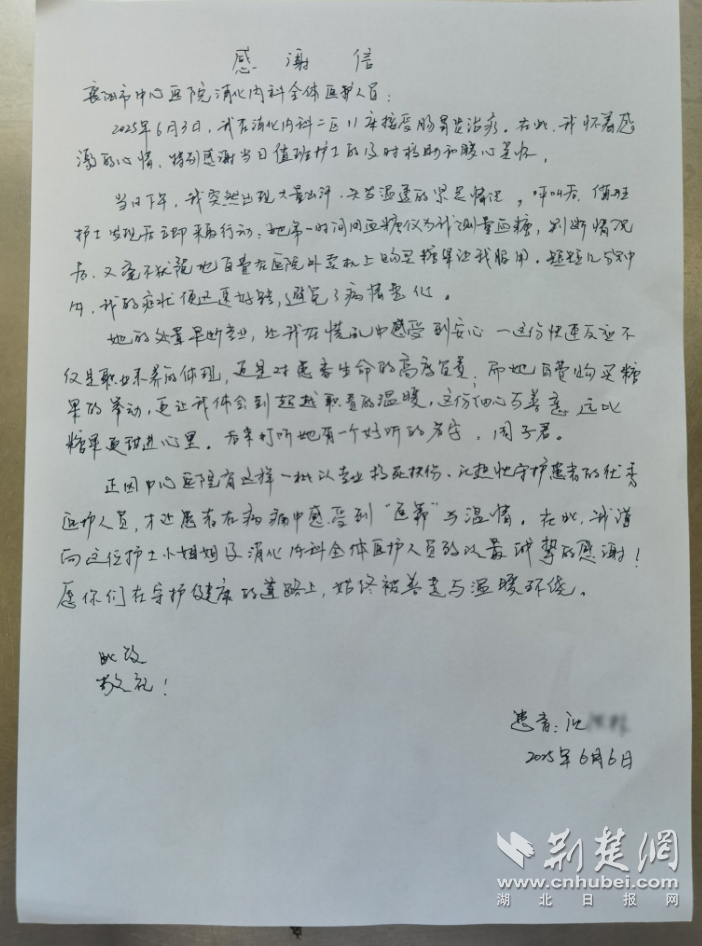 感谢信
襄阳市中心医院消化内科全体医护人员：
2025年6月3日，我在消化内科二区11床接受肠胃炎治疗。在此，我怀着感
激的心情，特别感谢当日值班护士的及时救助和暖心关怀。
当日下午，我突然出现大量出汗、头晕的紧急情况，呼叫后，值班
护士发现后立即采取行动：她第一时间用血糖仪为我测量血糖，判断情况
后，又毫不犹豫地自费在医院外卖机上购买糖果让我服用。短短几分钟
内，我的症状便迅速好转，避免了病情恶化。
她的处置果断专业，让我在慌乱中感受到安心——这份快速反应不
仅是职业素养的体现，更是对患者生命的高度负责；而她自费购买糖
果的举动，更让我体会到超越职责的温暖，这份细心与善意，远比
糖果更甜进心里。后来打听她有一个好听的名字，周子君。
正因中心医院有这样一批以专业救死扶伤、以热忱守护患者的优秀
医护人员，才让患者在病痛中感受到“医者”与温情。在此，我谨
向这位护士小姐姐及消化内科全体医护人员致以最诚挚的感谢！
愿你们在守护健康的道路上，始终被善意与温暖环绕。
此致
敬礼！
患者：沈
2025年6月6日
荆楚网
www.cnhubei.com
湖北日报网